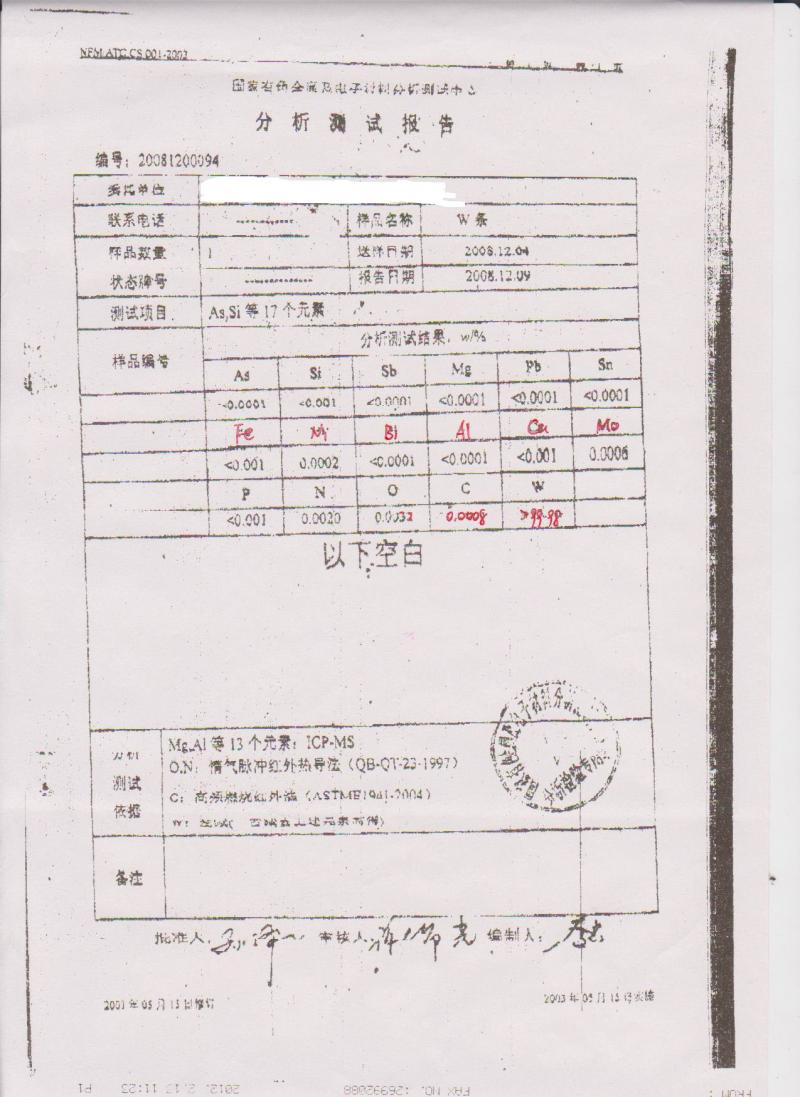 NFM.ATC.CS 001-2003
国家有色金属及电子材料分析测试中心
分 析 测 试 报 告
编号：20081200094
委托单位
联系电话 ------------ 样品名称 W 条
样品数量 1 送样日期 2008.12.04
状态牌号 ------------ 报告日期 2008.12.09
测试项目 As,Si 等 17 个元素
样品编号 分析测试结果，w/%
As Si Sb Mg Pb Sn
<0.0001 <0.001 <0.0001 <0.0001 <0.0001 <0.0001
Fe Ni Bi Al Cu Mo
<0.001 0.0002 <0.0001 <0.0001 <0.001 0.0006
P N O C W
<0.001 0.0020 0.0032 0.0008 >99.98
以下空白
分析
测试
依据
Mg,Al 等 13 个元素：ICP-MS
O,N：惰气脉冲红外热导法（QB-QT-23-1997）
C：高频燃烧红外法（ASTME1941-2004）
备注
批准人： 审核人： 编制人：
2003 年 05 月 15 日修订 2003 年 05 月 15 日实施
2012. 2.17 11:23 P1
FAX NO. :26992088
FROM :